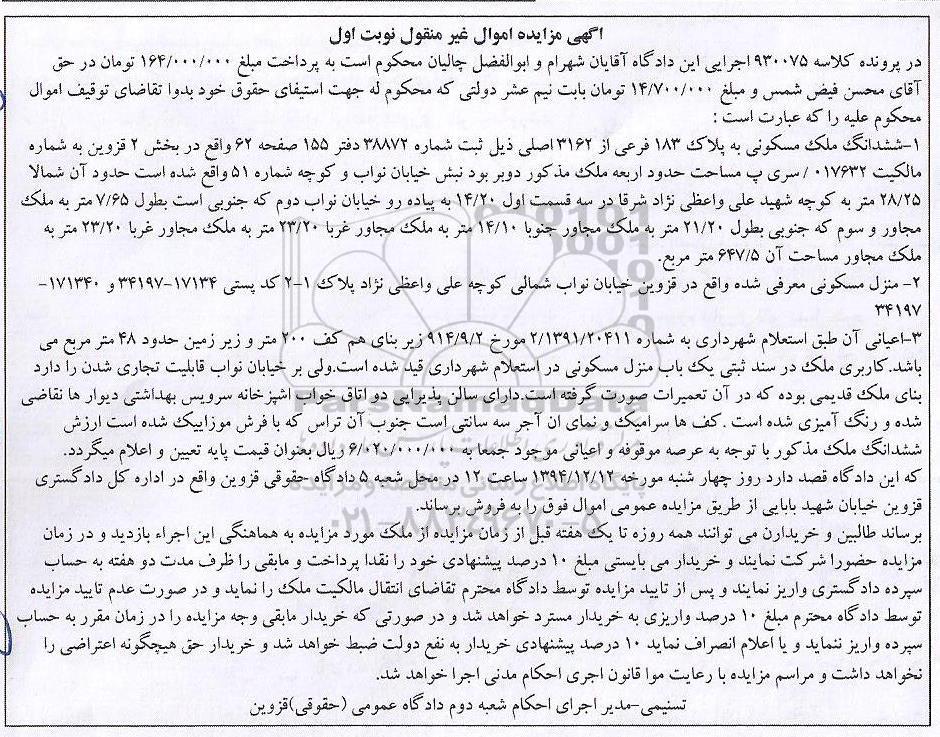 آگهی مزایده اموال غیر منقول نوبت اول
در پرونده کلاسه ۹۳۰۰۷۵ اجرایی این دادگاه آقایان شهرام و ابوالفضل چالیان محکوم است به پرداخت مبلغ ۱۶۴/۰۰۰/۰۰۰ تومان در حق
آقای محسن فیض شمس و مبلغ ۱۴/۷۰۰/۰۰۰ تومان بابت نیم عشر دولتی که محکوم له جهت استیفای حقوق خود بدوا تقاضای توقیف اموال
محکوم علیه را که عبارت است :
۱-ششدانگ ملک مسکونی به پلاک ۱۸۳ فرعی از ۳۱۶۲ اصلی ذیل ثبت شماره ۳۸۸۷۲ دفتر ۱۵۵ صفحه ۶۲ واقع در بخش ۲ قزوین به شماره
مالکیت ۰۱۷۶۳۲ / سری پ مساحت حدود اربعه ملک مذکور دوبر بود نبش خیابان نواب و کوچه شماره ۵۱ واقع شده است حدود آن شمالا
۲۸/۲۵ متر به کوچه شهید علی واعظی نژاد شرقا در سه قسمت اول ۱۴/۲۰ به پیاده رو خیابان نواب دوم که جنوبی است بطول ۷/۶۵ متر به ملک
مجاور و سوم که جنوبی بطول ۲۱/۲۰ متر به ملک مجاور جنوبا ۱۴/۱۰ متر به ملک مجاور غربا ۲۳/۲۰ متر به ملک مجاور غربا ۲۳/۲۰ متر به
ملک مجاور مساحت آن ۶۴۷/۵ متر مربع.
۲- منزل مسکونی معرفی شده واقع در قزوین خیابان نواب شمالی کوچه علی واعظی نژاد پلاک ۱-۲ کد پستی ۱۷۱۳۴-۳۴۱۹۷ و ۱۷۱۳۴۰-
۳۴۱۹۷
۳-اعیانی آن طبق استعلام شهرداری به شماره ۲/۱۳۹۱/۲۰۴۱۱ مورخ ۹۱۴/۹/۲ زیر بنای هم کف ۲۰۰ متر و زیر زمین حدود ۴۸ متر مربع می
باشد.کاربری ملک در سند ثبتی یک باب منزل مسکونی در استعلام شهرداری قید شده است.ولی بر خیابان نواب قابلیت تجاری شدن را دارد
بنای ملک قدیمی بوده که در آن تعمیرات صورت گرفته است.دارای سالن پذیرایی دو اتاق خواب اشپزخانه سرویس بهداشتی دیوار ها نقاضی
شده و رنگ آمیزی شده است . کف ها سرامیک و نمای آن آجر سه سانتی است جنوب آن تراس که با فرش موزاییک شده است ارزش
ششدانگ ملک مذکور با توجه به عرصه موقوفه و اعیانی موجود جمعا به ۶/۰۲۰/۰۰۰/۰۰۰ ریال بعنوان قیمت پایه تعیین و اعلام میگردد.
که این دادگاه قصد دارد روز چهار شنبه مورخه ۱۳۹۴/۱۲/۱۲ ساعت ۱۲ در محل شعبه ۵ دادگاه حقوقی قزوین واقع در اداره کل دادگستری
قزوین خیابان شهید بابایی از طریق مزایده عمومی اموال فوق را به فروش برساند.
برساند طالبین و خریدارن می توانند همه روزه تا یک هفته قبل از زمان مزایده از ملک مورد مزایده به هماهنگی این اجراء بازدید و در زمان
مزایده حضورا شرکت نمایند و خریدار می بایستی مبلغ ۱۰ درصد پیشنهادی خود را نقدا پرداخت و مابقی را ظرف مدت دو هفته به حساب
سپرده دادگستری واریز نمایند و پس از تایید مزایده توسط دادگاه محترم تقاضای انتقال مالکیت ملک را نماید و در صورت عدم تایید مزایده
توسط دادگاه محترم مبلغ ۱۰ درصد واریزی به خریدار مسترد خواهد شد و در صورتی که خریدار مابقی وجه مزایده را در زمان مقرر به حساب
سپرده واریز ننماید و یا اعلام انصراف نماید ۱۰ درصد پیشنهادی خریدار به نفع دولت ضبط خواهد شد و خریدار حق هیچگونه اعتراضی را
نخواهد داشت و مراسم مزایده با رعایت موا قانون اجری احکام مدنی اجرا خواهد شد.
تسنیمی-مدیر اجرای احکام شعبه دوم دادگاه عمومی (حقوقی)قزوین
ParsNamadData
پایگاه اطلاع رسانی مناقصه و مزایده
۰۲۱-۸۸۳۴۹۶۷۰-۵